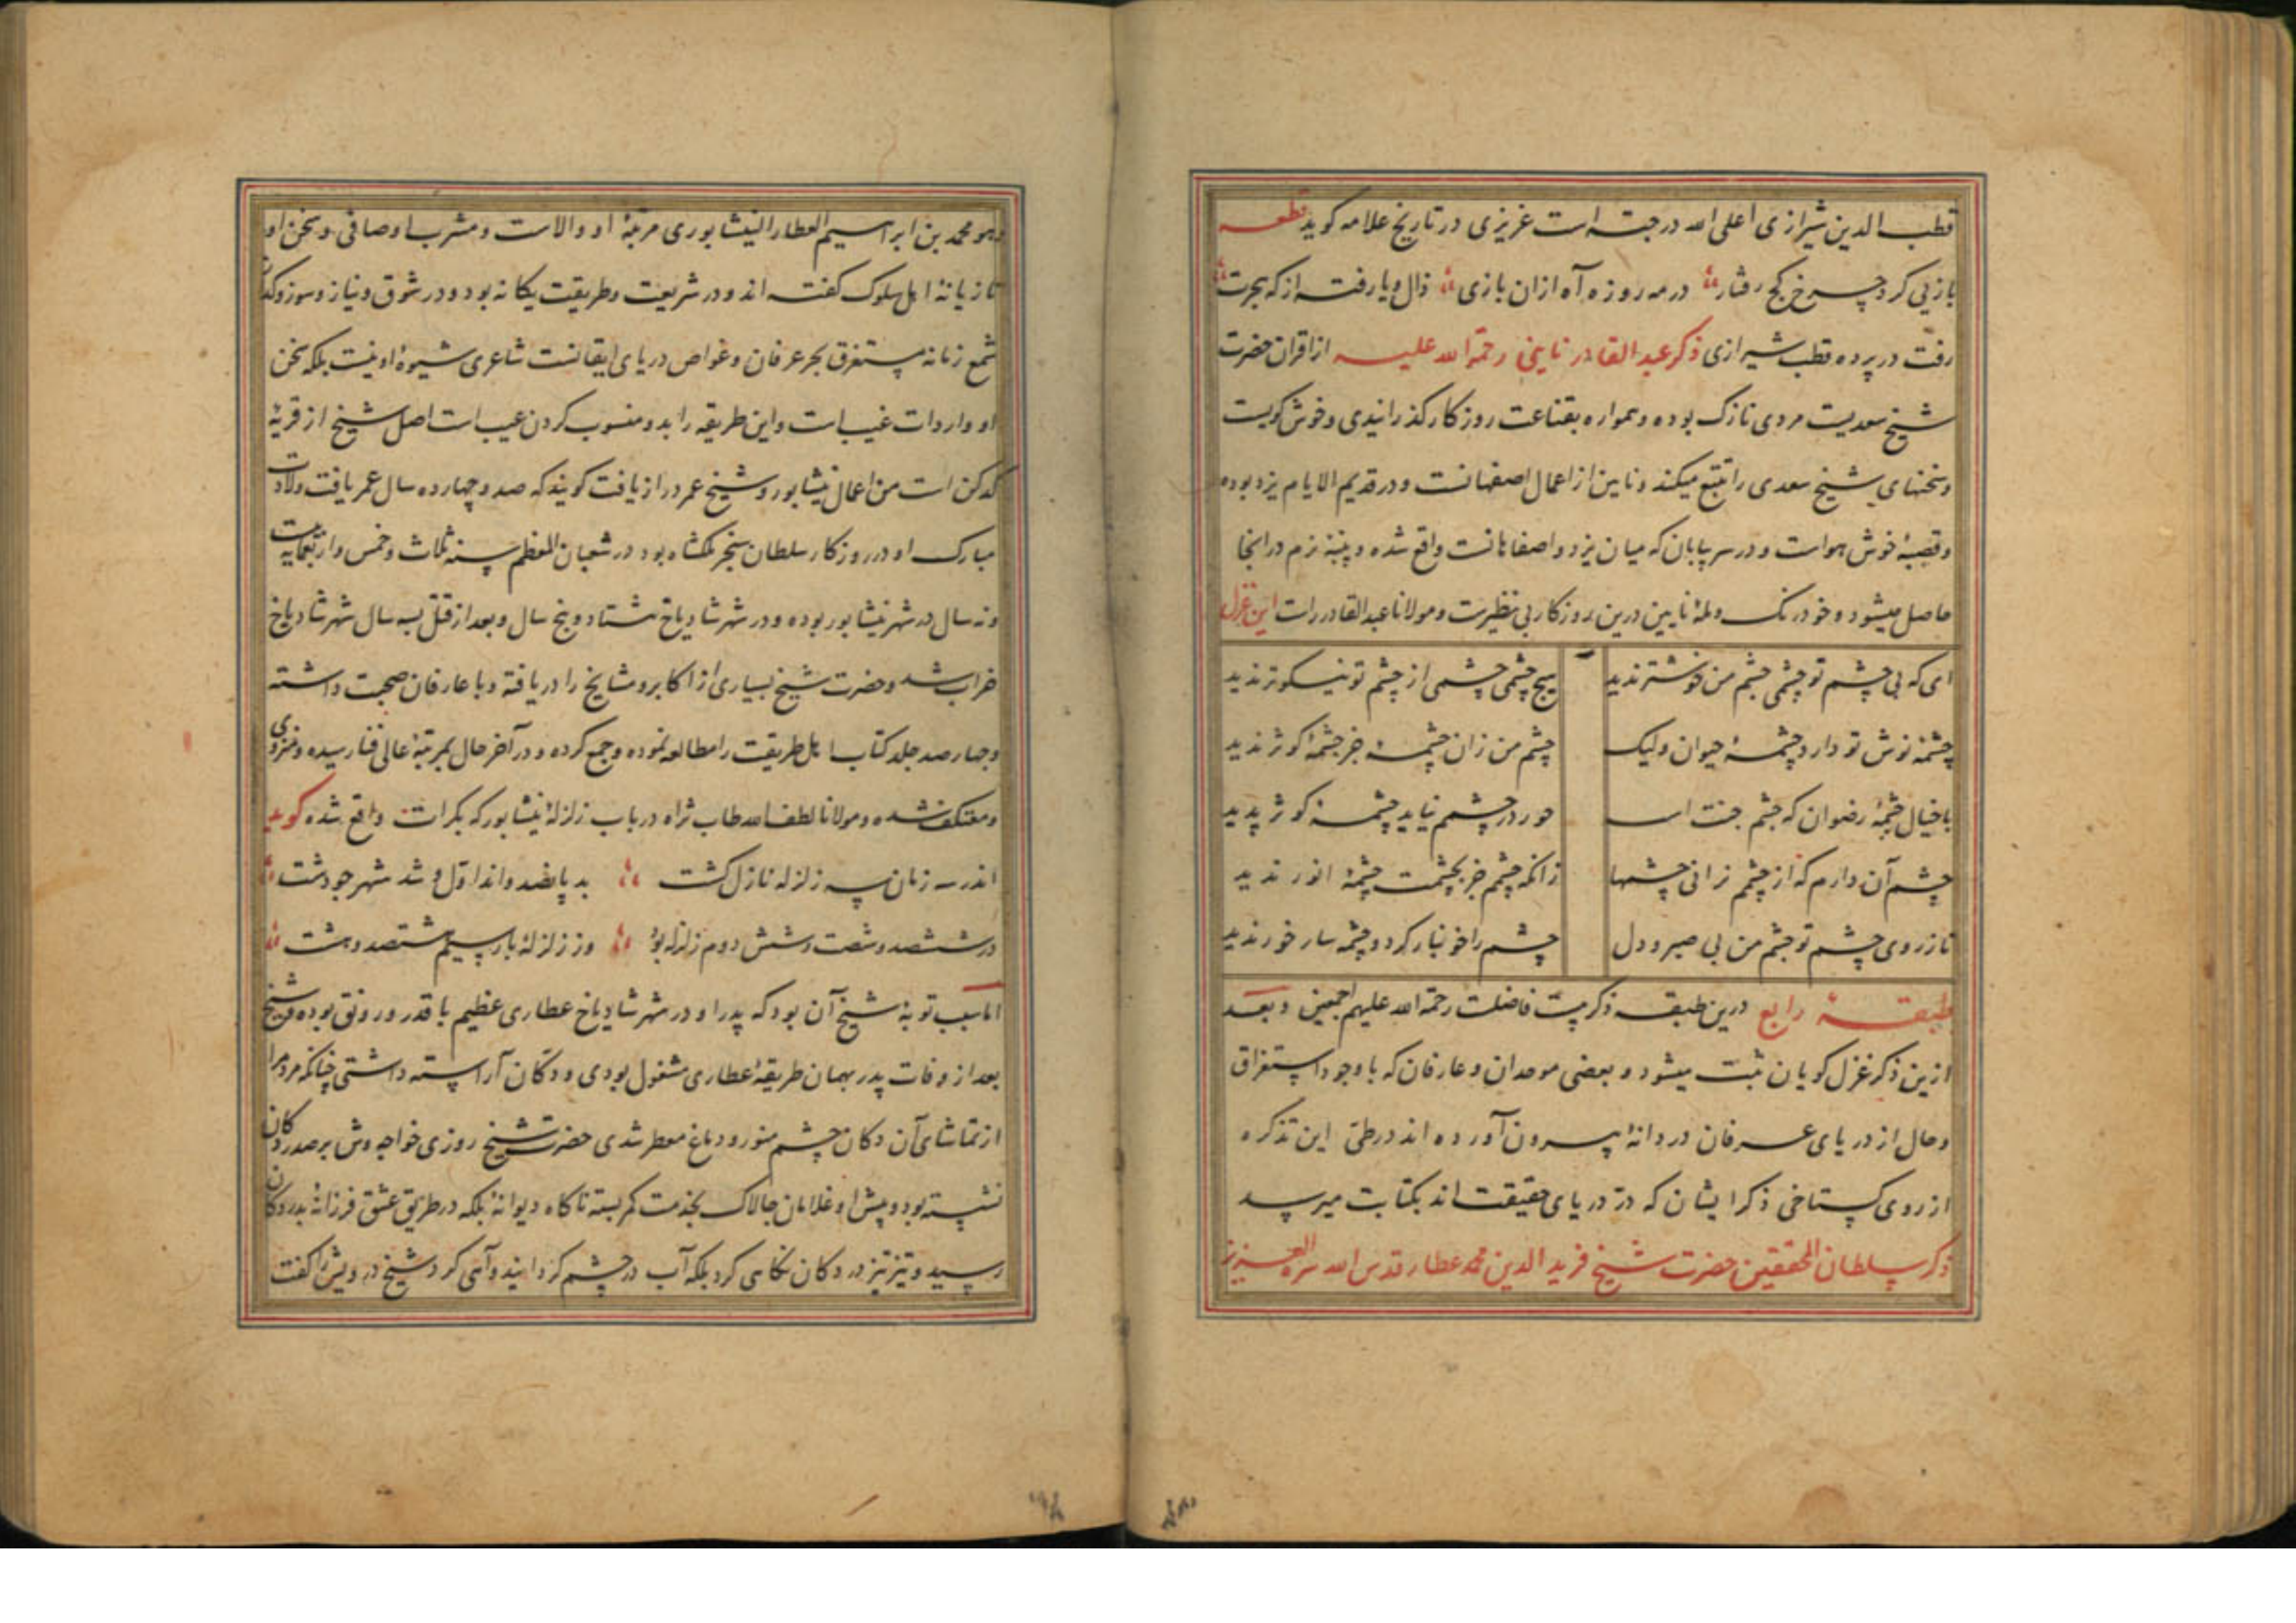 قطب الدین شیرازی اعلی الله درجته است عزیزی در تاریخ علامه کوید قطعه
بازیی کرد چرخ کج رفتار در مه روزه آه ازان بازی ذال ویا رفته از که هجرت
رفت در پرده قطب شیرازی ذکر عبد القادر نایینی رحمة الله علیه از اقران حضرت
شیخ سعدیست مردی نازک بوده و همواره بقناعت روزکار کذرانیدی و خوش کویست
و سخنهای شیخ سعدی را تتبع میکند و نایین از اعمال اصفهانست و در قدیم الایام یزد بوده
و قصبهٔ خوش هواست و در سر بیابان که میان یزد و اصفاهانست واقع شده و پنبهٔ نرم در انجا
حاصل میشود و خود رنک و لمهٔ نایین درین روزکار بی نظیرست و مولانا عبد القادر راست این غزل
ای که بی چشم تو چشمی چشم من خوشتر ندید هیچ چشمی چشمی از چشم تو نیکوتر ندید
چشمهٔ نوش تو دارد چشمهٔ حیوان ولیک چشم من زان چشمه جز چشمهٔ کوثر ندید
با خیال چشمهٔ رضوان که چشم جنت است حور در چشم نیاید چشمهٔ کوثر پدید
چشم آن دارم که از چشم نرانی چشمها زانکه چشمم جز بچشمت چشمهٔ انور ندید
تا ز روی چشم تو چشم من بی صبر و دل چشم را خونبار کرد و چشمه سار خور ندید
طبقهٔ رابع درین طبقه ذکر بیست فاضلست رحمة الله علیهم اجمعین و بعد
ازین ذکر غزل کویان ثبت میشود و بعضی موحدان و عارفان که با وجود استغراق
و حال از دریای عرفان دردانهٔ بیرون آورده اند در طی این تذکره
از روی کستاخی ذکر ایشان که در دریای حقیقت اند بکتابت میرسد
ذکر سلطان المحققین حضرت شیخ فرید الدین محمد عطار قدس الله سره العزیز
وهو محمد بن ابراهیم العطار النیشابوری مرتبهٔ او والاست و مشرب او صافی و سخن او را
تازیانهٔ اهل سلوک کفته اند و در شریعت و طریقت یکانه بود و در شوق و نیاز و سوز و کداز
شمع زمانه مستغرق بحر عرفان و غواص دریای ایقانست شاعری شیوهٔ او نیست بلکه سخن
او واردات غیب است و این طریقه را بدو منسوب کردن عیب است اصل شیخ از قریهٔ
کدکن است من اعمال نیشابور و شیخ عمر دراز یافت کویند که صد و چهارده سال عمر یافت ولادت
مبارک او در روزکار سلطان سنجر ملکشاه بود در شعبان المعظم سنه ثلاث و خمس و اربعمایه بیست
و نه سال در شهر نیشابور بوده و در شهر شادیاخ هشتاد و پنج سال و بعد از قتل بسه سال شهر شادیاخ
خراب شد و حضرت شیخ بسیاری از اکابر و مشایخ را دریافته و با عارفان صحبت داشته
و چهارصد جلد کتاب اهل طریقت را مطالعه نموده و جمع کرده و در آخر حال بمرتبهٔ عالی فنا رسیده و منزوی
و معتکف شده و مولانا لطف الله طاب ثراه در باب زلزلهٔ نیشابور که بکرات واقع شده کوید
اندر سه زمان سه زلزله نازل کشت بد پانصد و اند اول و شد شهر چو دشت
در ششصد و شصت و شش دوم زلزله بود وز زلزلهٔ بار سیم هشتصد و هشت
اما سبب توبهٔ شیخ آن بود که پدر او در شهر شادیاخ عطاری عظیم با قدر و رونق بوده و شیخ
بعد از وفات پدر بهمان طریقهٔ عطاری مشغول بودی و دکان آراسته داشتی چنانکه مردم را
از تماشای آن دکان چشم منور و دماغ معطر شدی حضرت شیخ روزی خواجه وش بر صدر دکان
نشسته بود و پیش او غلامان چالاک بخدمت کمر بسته ناکاه دیوانهٔ بلکه در طریق عشق فرزانهٔ بدر دکان
رسید و تیز تیز در دکان نکاهی کرد بلکه آب در چشم کردانید و آهی کرد شیخ درویش را کفت